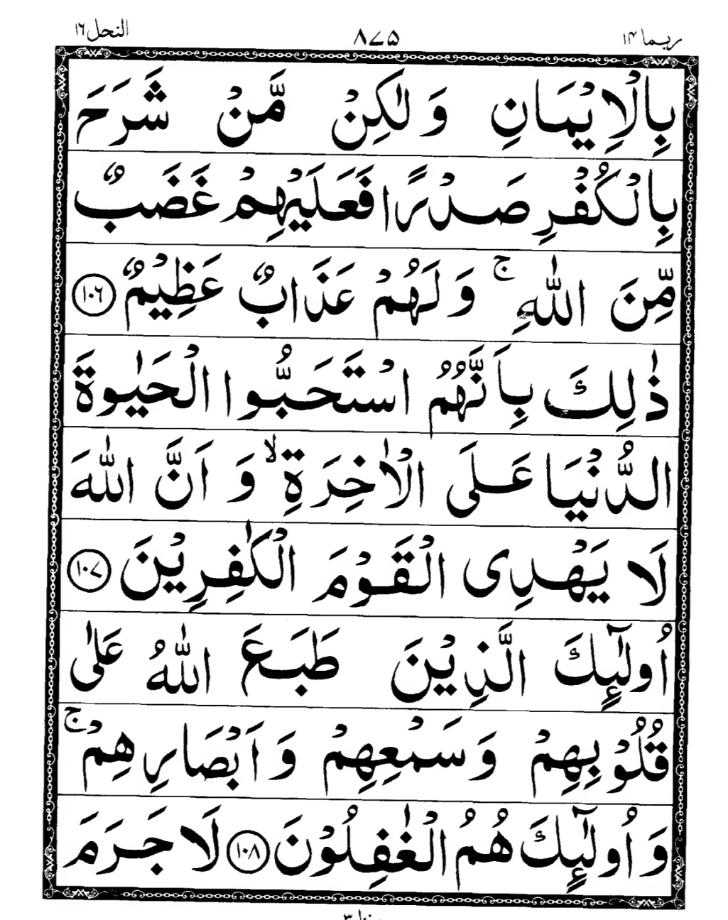 ربما ۱۴ ۸۷۵ النحل ۱۶
بِالْاِيْمَانِ وَلٰكِنْ مَّنْ شَرَحَ
بِالْكُفْرِ صَدْرًا فَعَلَيْهِمْ غَضَبٌ
مِّنَ اللّٰهِ ۚ وَلَهُمْ عَذَابٌ عَظِيْمٌ ﴿۱۰۶﴾
ذٰلِكَ بِاَنَّهُمُ اسْتَحَبُّوا الْحَيٰوةَ
الدُّنْيَا عَلَى الْاٰخِرَةِ ۙ وَ اَنَّ اللّٰهَ
لَا يَهْدِى الْقَوْمَ الْكٰفِرِيْنَ ﴿۱۰۷﴾
اُولٰٓئِكَ الَّذِيْنَ طَبَعَ اللّٰهُ عَلٰى
قُلُوْبِهِمْ وَسَمْعِهِمْ وَاَبْصَارِهِمْ ۚ
وَ اُولٰٓئِكَ هُمُ الْغٰفِلُوْنَ ﴿۱۰۸﴾ لَا جَرَمَ